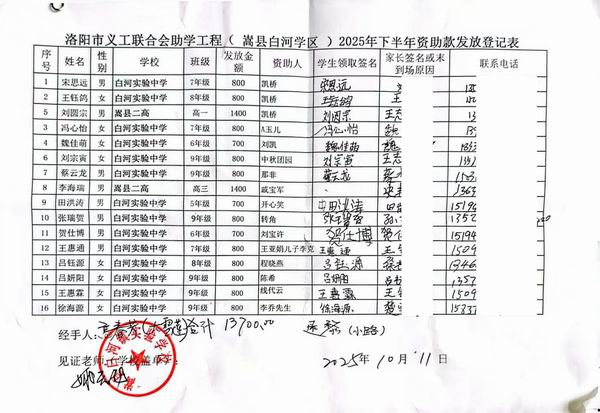 洛阳市义工联合会助学工程（嵩县白河学区）2025年下半年资助款发放登记表
序号 姓名 性别 学校 班级 发放金额 资助人 学生领取签名 家长签名或未到场原因 联系电话
1 宋思远 男 白河实验中学 7年级 800 凯桥 宋思远
2 王钰鸽 女 白河实验中学 8年级 800 凯桥 王钰鸽 王
5 刘圆宗 男 嵩县二高 高一 1400 凯桥 刘圆宗 王志 13
3 冯心怡 女 白河实验中学 7年级 800 A玉儿 冯心怡
4 魏佳萌 女 白河实验中学 6年级 700 刘凯 魏佳萌 魏
6 刘宗寅 女 白河实验中学 9年级 800 中秋团园 刘宗寅 王志
7 蔡云龙 男 白河实验中学 7年级 800 那非 蔡云龙
8 李海瑞 男 嵩县二高 高三 1400 戚宝军 1363
9 田洪涛 男 白河实验中学 5年级 700 开心笑 田洪涛 15194
10 张瑞贺 男 白河实验中学 9年级 800 转角 张瑞贺 1352
11 贺仕博 男 白河实验中学 6年级 700 刘宝许 贺仕博 15194
12 王惠通 男 白河实验中学 7年级 800 王亚娟儿子李克 王惠通 王 1509
13 吕钰源 女 白河实验中学 8年级 800 程晓燕 吕钰源 1346
14 吕妍阳 女 白河实验中学 9年级 800 陈希 吕妍阳 1357
15 王惠霖 女 白河实验中学 9年级 800 线代云 王惠霖 王 1509
16 徐海源 女 白河实验中学 9年级 800 李乔先生 徐海源 15237
经手人： 合计 13700.00
见证老师（学校盖单）
2025年10月11日